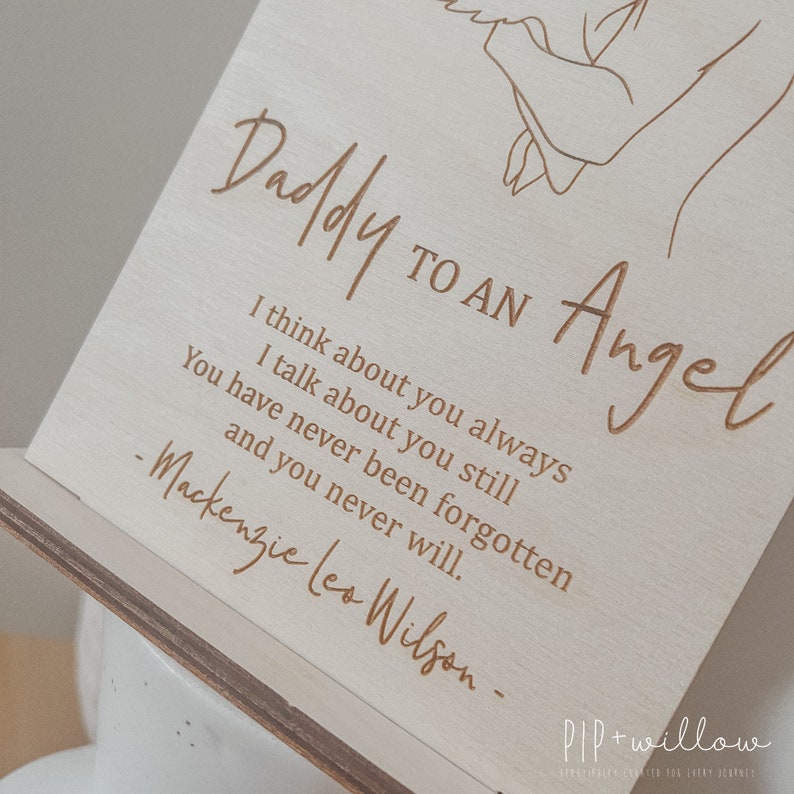 Daddy TO AN Angel
I think about you always
I talk about you still
You have never been forgotten
and you never will.
- Mackenzie Leo Wilson -
PIP + willow
BEAUTIFULLY CURATED FOR EVERY JOURNEY